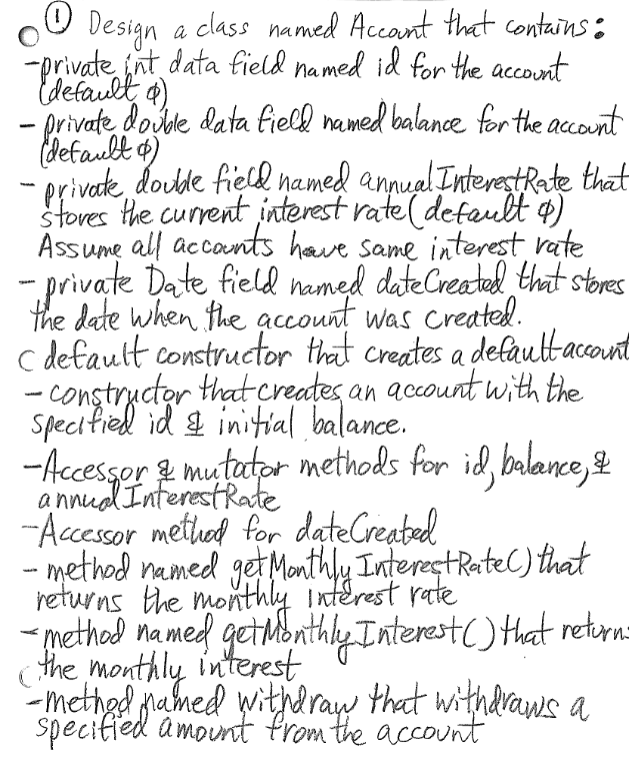 ① Design a class named Account that contains:
-private int data field named id for the account
(default φ)
- private double data field named balance for the account
(default φ)
- private double field named annualInterestRate that
stores the current interest rate (default φ)
Assume all accounts have same interest rate
- private Date field named dateCreated that stores
the date when the account was created.
default constructor that creates a default account
- constructor that creates an account with the
specified id & initial balance.
-Accessor & mutator methods for id, balance, &
annualInterestRate
-Accessor method for dateCreated
- method named getMonthlyInterestRate() that
returns the monthly interest rate
- method named getMonthlyInterest() that returns
the monthly interest
-method named withdraw that withdraws a
specified amount from the account